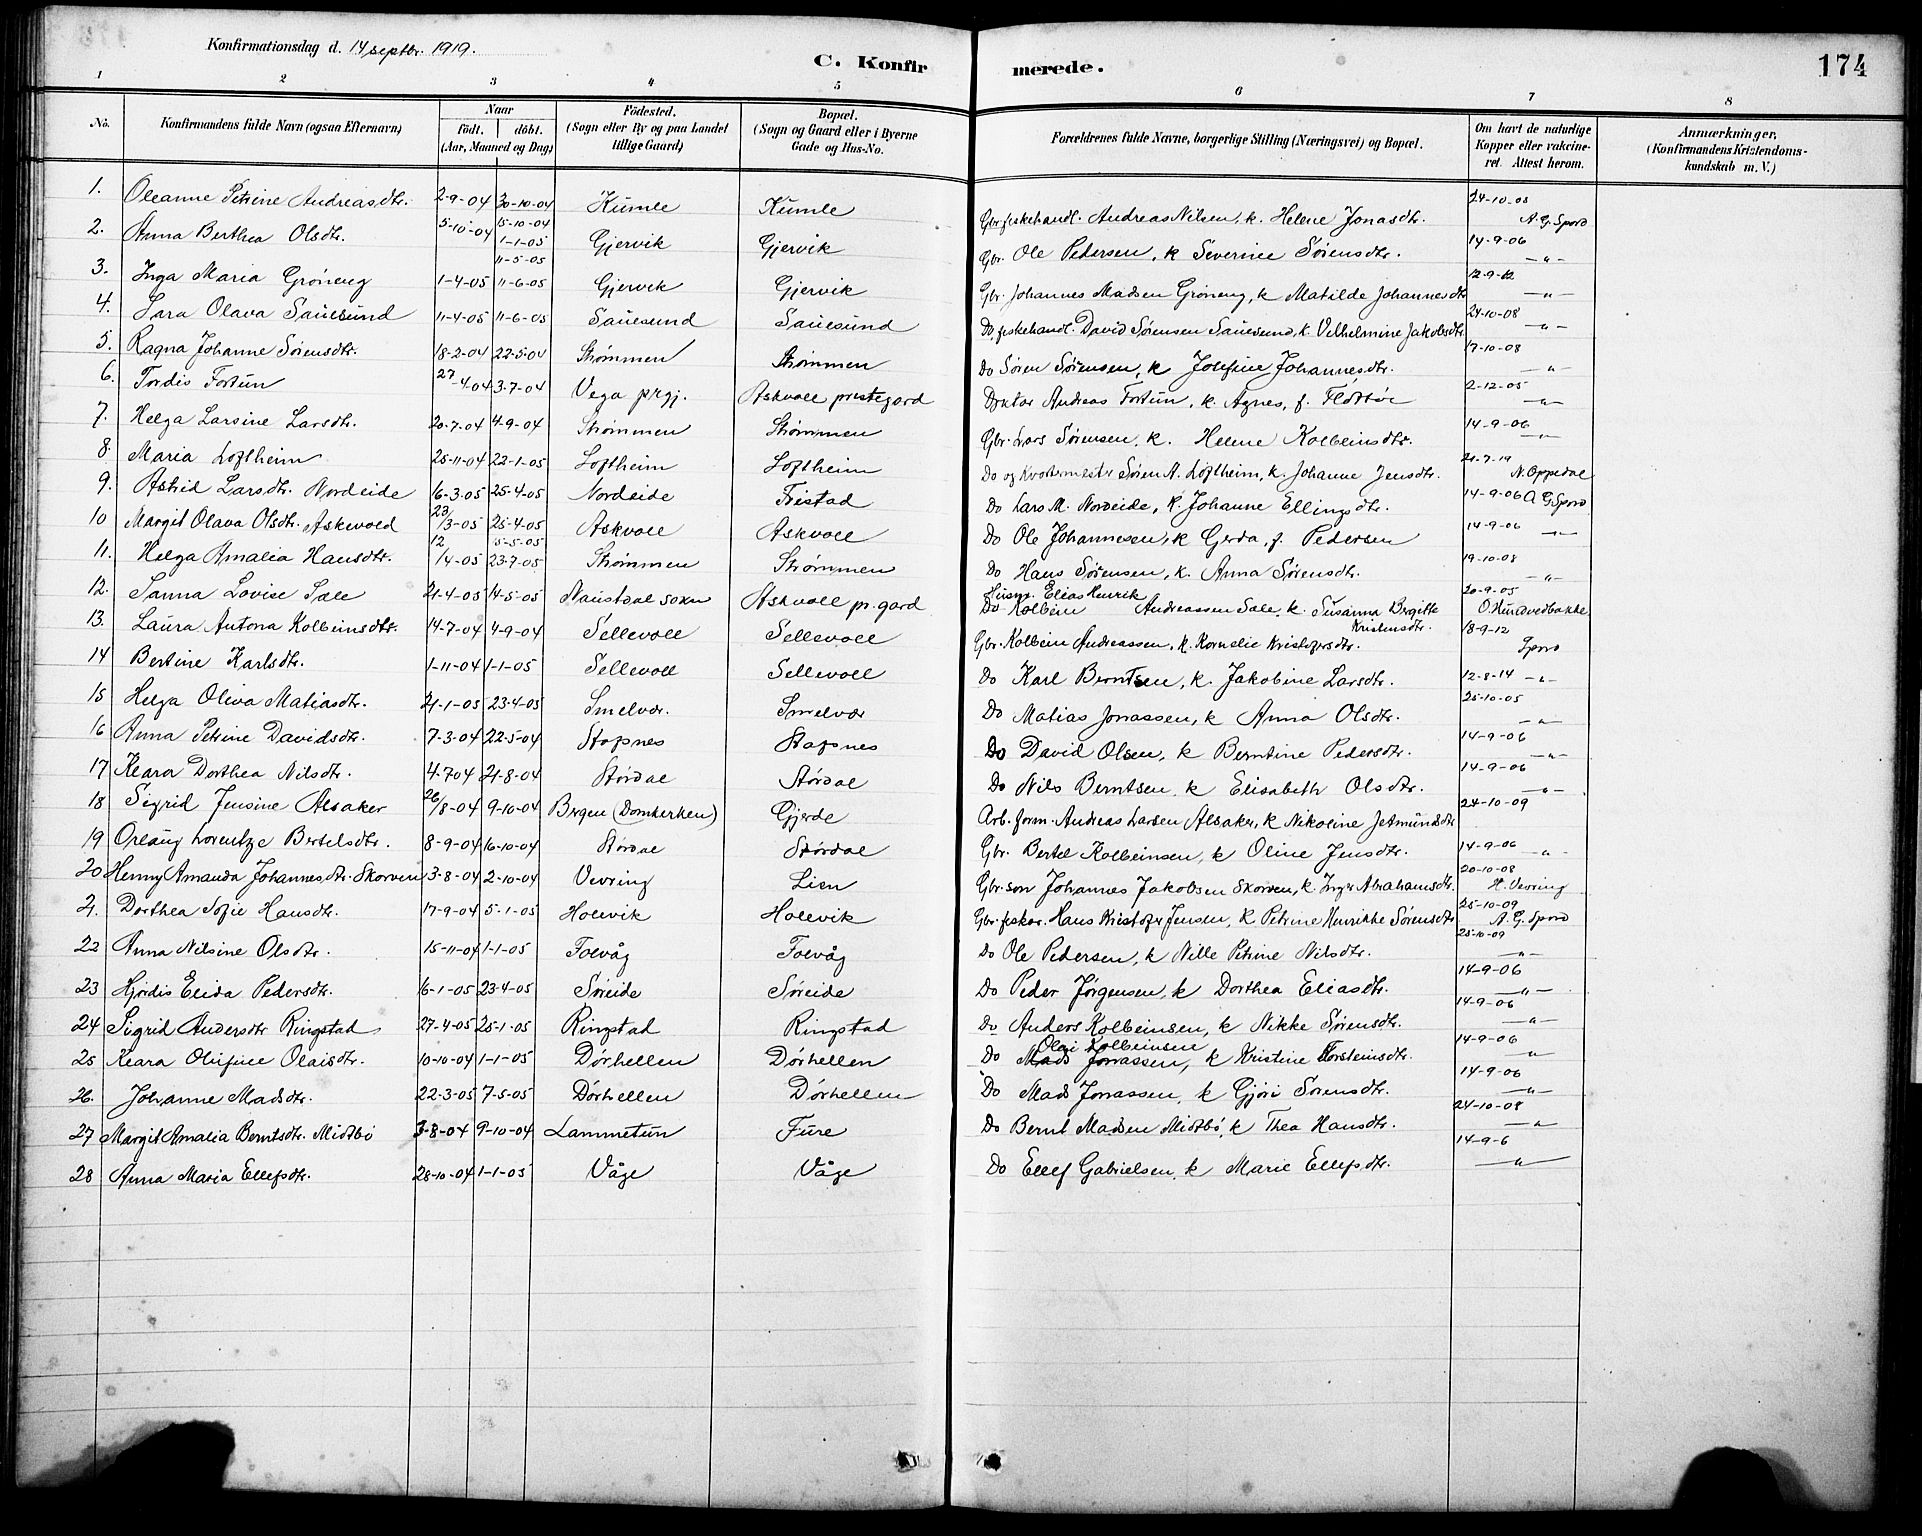 Konfirmationsdag d. 14 septbr. 1919.
C. Konfirmerede.
174
1 2 3 4 5 6 7 8
No.
Konfirmandens fulde Navn (ogsaa Efternavn)
Naar födt. döbt. (Aar, Maaned og Dag)
Födested. (Sogn eller By og paa Landet tillige Gaard)
Bopæl. (Sogn og Gaard eller i Byerne Gade og Hus-No.
Forældrenes fulde Navne, borgerlige Stilling (Næringsvei) og Bopæl.
Om havt de naturlige Kopper eller vakcineret. Attest herom.
Anmærkninger, (Konfirmandens Kristendomskundskab m. V.)
1. Oleanne Petrine Andreasdtr. 2-9-04 30-10-04 Kumle Kumle Gbr. fiskehandl. Andreas Nilsen, k. Helene Jonasdtr. 24-10-08 A. G. Spord
2. Anna Berthea Olsdtr. 5-10-04 15-10-04 1-1-05 Gjervik Gjervik Gbr. Ole Pedersen, k Severine Sørensdtr. 14-9-06 -"-
3. Inga Maria Grøneng 1-4-05 11-5-05 11-6-05 Gjervik Gjervik Gbr. Johannes Madsen Grøneng, k Matilde Johannesdtr 12-9-12 -"-
4. Lara Olava Sauesund 11-4-05 11-6-05 Sauesund Sauesund Do, fiskehandl. David Sørensen Sauesund, k. Vilhelmine Jakobsdtr 24-10-08 -"-
5. Ragna Johanne Sørensdtr. 18-2-04 22-5-04 Strømmen Strømmen Do Søren Sørensen, k Josefine Johannesdtr. 17-10-08 -"-
6. Tordis Fortun 27-4-04 3-7-04 Vega prgj. Askvoll prestegard Andreas Fortun, k. Agnes, f. 2-12-05 -"-
7. Helga Larsine Larsdtr. 20-7-04 4-9-04 Strømmen Strømmen Gbr. Lars Sørensen, k. Helene Kolbeinsdtr. 14-9-06 -"-
8. Maria Loftheim 25-11-04 22-1-05 Loftheim Loftheim Do og Kvartermester Søren A. Loftheim, k. Johanne Jensdtr. 21-7-19 N. Oppedal
9. Astrid Larsdtr. Nordeide 16-3-05 25-4-05 Nordeide Fristad Do Lars M. Nordeide, k. Johanne Ellingsdtr. 14-9-06 A. G. Spord
10 Margit Olava Olsdtr. Askevold 23/3-05 25-4-05 Askvoll Askvoll Do Ole Johannesen, k Gerda, f. Pedersen 14-9-06 -"-
11. Helga Amalia Hansdtr. 12/4-05 5-5-05 23-7-05 Strømmen Strømmen Do Hans Sørensen, k. Anna Sørensdtr. 19-10-08 -"-
12. Sanna Lovise Sæle 21-4-05 14-5-05 Naustdal sokn Askvoll pr. gard Husm. Elias Henrik Do Kolbein Andreassen Sæle, k. Susanna Birgitte Kristensdtr. 20-9-05
13. Laura Antona Kolbeinsdtr. 14-7-04 4-9-04 Sellevoll Sellevoll Gbr. Kolbein Andreassen, k. Kornelie Kristofersdtr. 18-9-12 Spord
14 Bertine Karlsdtr. 1-11-04 1-1-05 Sellevoll Sellevoll Do Karl Berntsen, k. Jakobine Larsdtr. 12-8-14 -"-
15 Helga Oliva Matiasdtr. 21-1-05 23-4-05 Smelvær. Smelvær Do Matias Jonassen, k Anna Olsdtr. 25-10-05 -"-
16 Anna Petrine Davidsdtr. 7-3-04 22-5-04 Stafsnes Stafsnes Do David Olsen, k Berntine Pedersdtr. 14-9-06 -"-
17 Klara Dorthea Nilsdtr. 4-7 04 21-8-04 Stórdal Stórdal Do Nils Berntsen, k Elisabeth Olsdtr. 14-9-06 -"-
18 Sigrid Jensine Alsaker 26/8-04 9-10-04 Bergen (Domkirken) Gjerde Arb. form. Andreas Larsen Alsaker, k Nikoline Jetmundsdtr 24-10-09
19 Orlaug Lorentze Bertelsdtr. 8-9-04 16-10-04 Stórdal Stórdal Gbr. Bertel Kolbeinsen, k Oline Jensdtr. 14-9-06 -"-
20 Henny Amanda Johannesdtr. Skorven 3-8-04 2-10-04 Vevring Lien Gbr. son Johannes Jakobsen Skorven, k. Inger Abrahamsdtr. 20-10-08 H. Vevring
21. Dorthea Sofie Hansdtr. 17-9-04 5-1-05 Holevik Holevik Gbr. fisker. Hans Kristofer Jensen, k Petrine Henrikke Sørensdtr 25-10-09 A. G. Spord
22 Anna Nilsine Olsdtr. 15-11-04 1-1-05 Folvåg Folvåg Do Ole Pedersen, k Nille Petrine Nilsdtr. 25-10-09 -"-
23 Hjördis Elida Pedersdtr. 16-1-05 23-4-05 Søreide Søreide Do Peder Jørgensen, k Dorthea Eliasdtr. 14-9-06 -"-
24 Sigrid Andersdtr Ringstad 27-4-05 25-1-05 Ringstad Ringstad Do Anders Kolbeinsen, k Nikke Sørensdtr. 14-9-06 -"-
25 Klara Olufine Olaisdtr. 10-10-04 1-1-05 Dórhellen Dórhellen Do Olai Kolbeinsen Mads Jonassen, k Kristine Torsteinsdtr. 14-9-06 -"-
26. Johanne Madsdtr. 22-3-05 7-5-05 Dórhellen Dórhellen Do Mads Jonassen, k Gjóri Sørensdtr. 14-9-06 -"-
27 Margit Amalia Berntsdtr. Midtbó 3-8-04 9-10-04 Lammetun Fure Do Bernt Madsen Midtbó, k Thea Hansdtr. 24-10-08 -"-
28 Anna Maria Ellefsdtr. 28-10-04 1-1-05 Våge Våge Do Ellef Gabrielsen, k Marie Ellefsdtr. 14-9-6 -"-